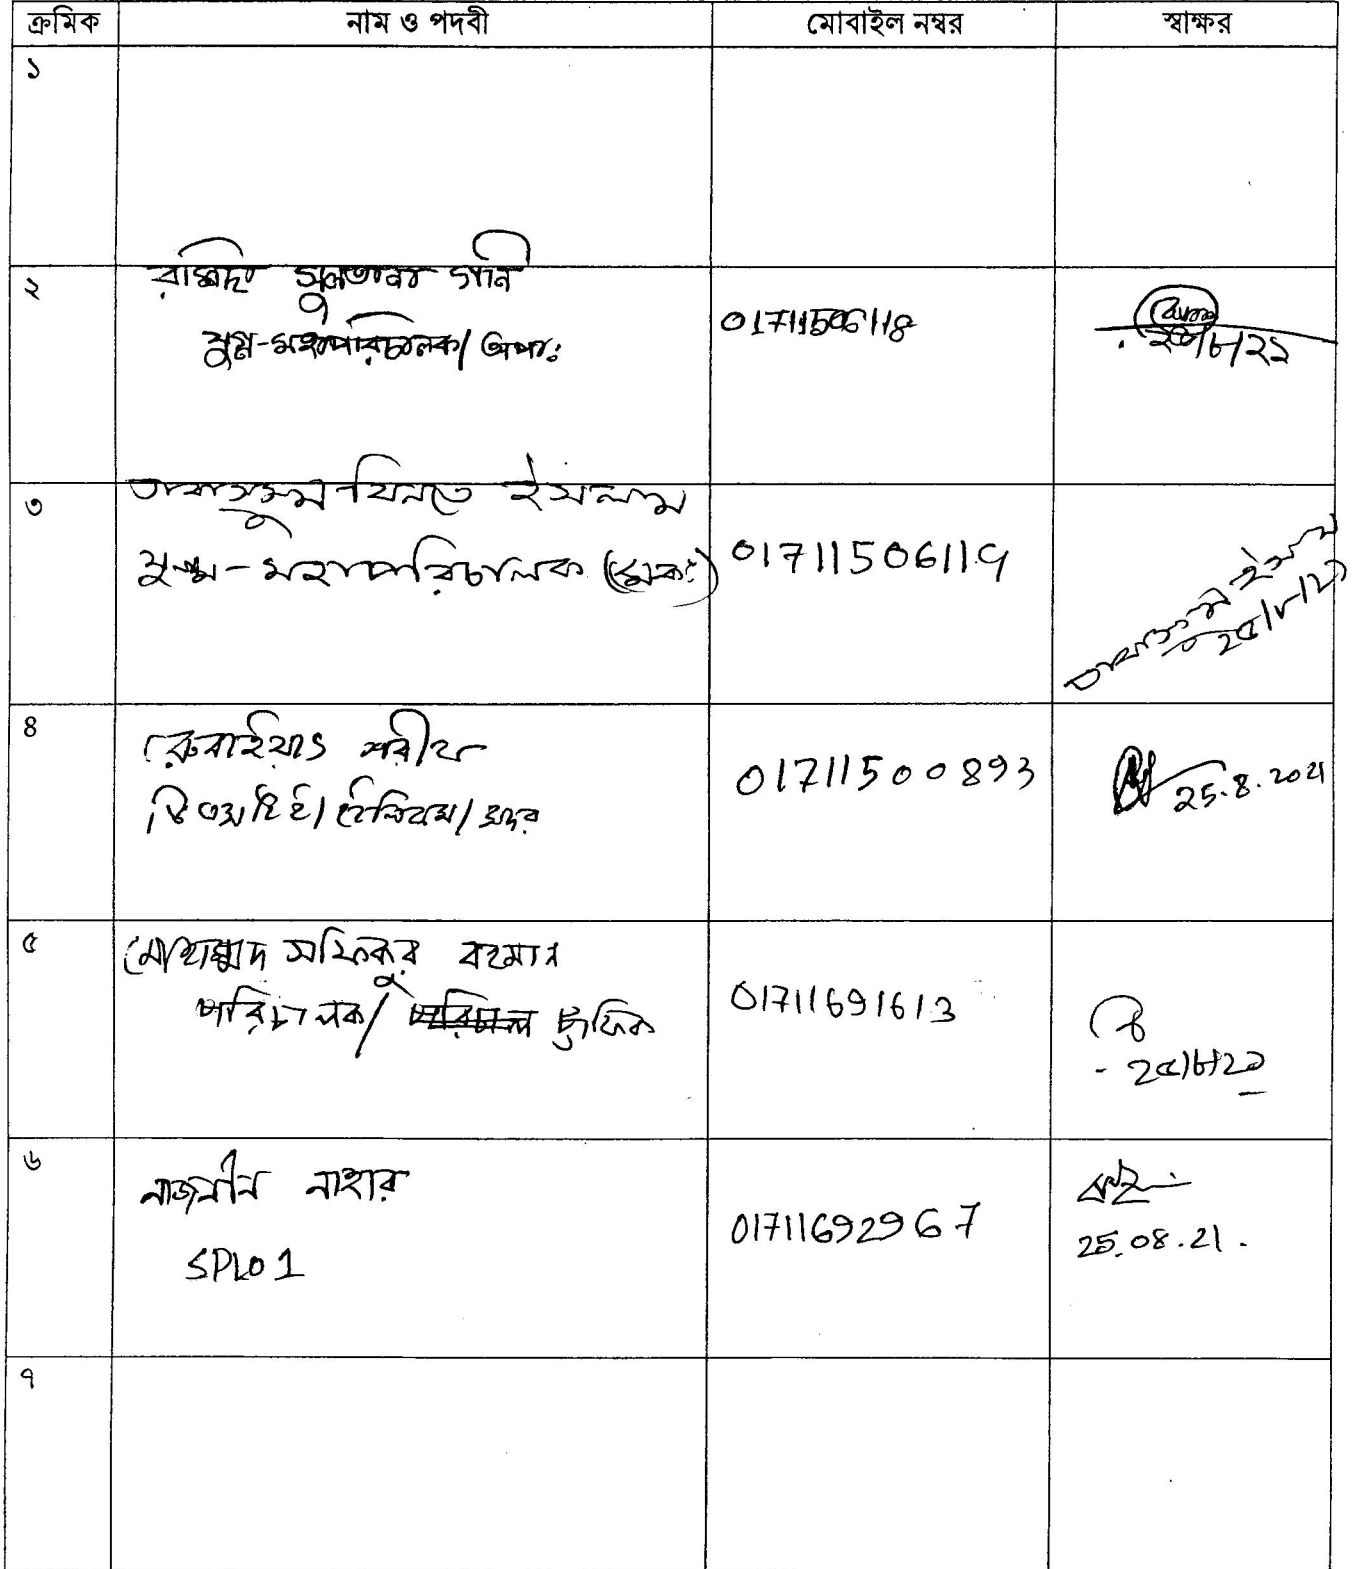 ক্রমিক নাম ও পদবী মোবাইল নম্বর স্বাক্ষর
১
২ রাশিদা সুলতানা গনি
যুগ্ম-মহাপরিচালক/অপাঃ 01711506118
২৫/৮/২১
৩ তাবাসসুম বিনতে ইসলাম
যুগ্ম-মহাপরিচালক (মেকাঃ) 01711506119
তাবাসসুম ইসলাম
২৫/৮/২১
৪ রুবাইয়াৎ শরীফ 01711500893 25.8.2021
ডিএসটিই/টেলিকম/সদর
৫ মোহাম্মদ সফিকুর রহমান
পরিচালক/ ট্রাফিক 01711691613
২৫/৮/২১
৬ নাজনীন নাহার
SPLO1 01711692967 25.08.21.
৭